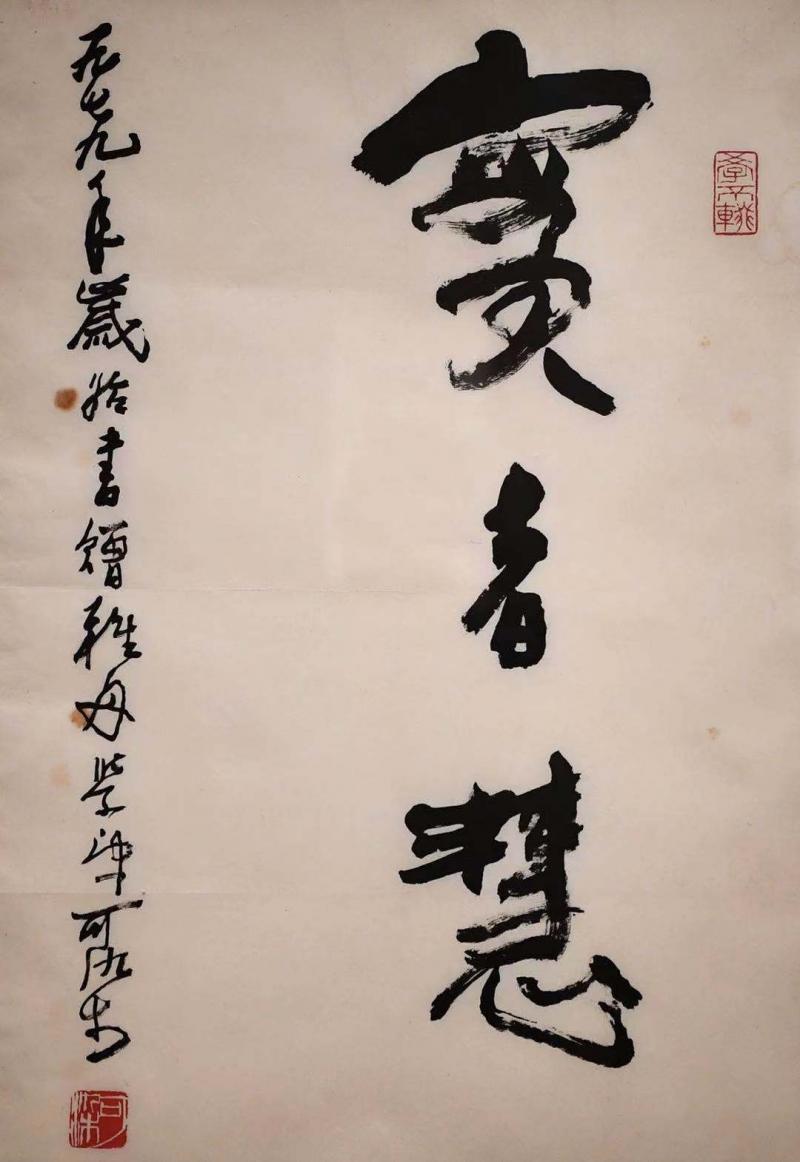 學不輟
實者慧
一九七九年歲始書贈學弟可染
可染